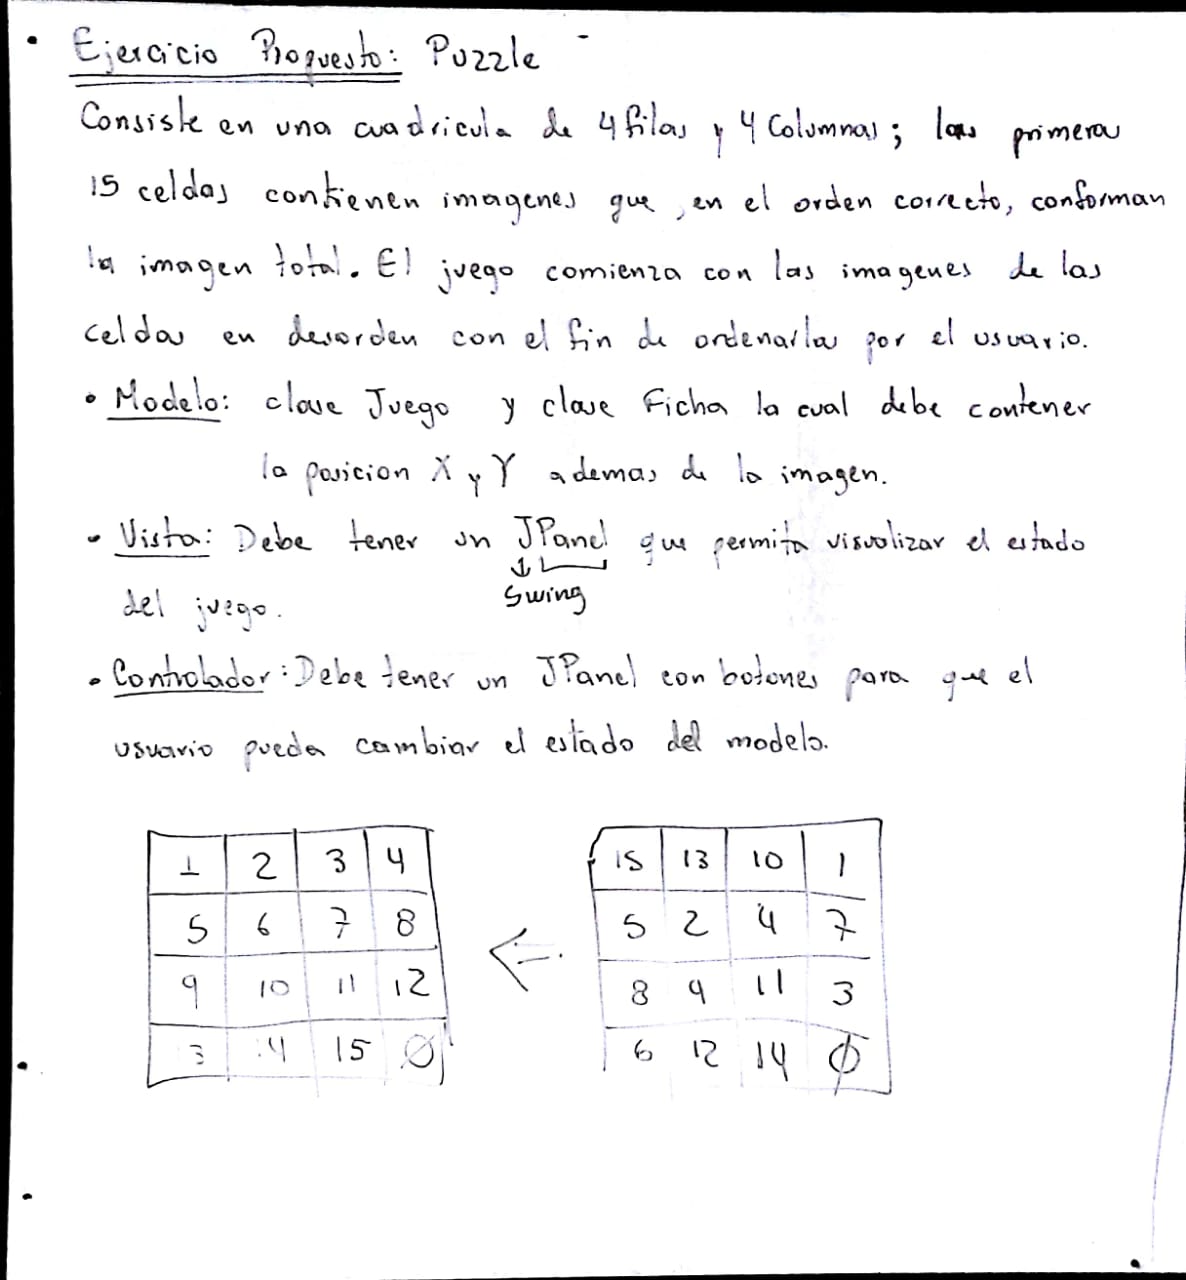 • Ejercicio Propuesto: Puzzle
Consiste en una cuadricula de 4 filas y 4 Columnas; las primeras
15 celdas contienen imagenes que, en el orden correcto, conforman
la imagen total. El juego comienza con las imagenes de las
celdas en desorden con el fin de ordenarlas por el usuario.
• Modelo: clase Juego y clase Ficha la cual debe contener
la posicion X y Y ademas de la imagen.
• Vista: Debe tener un JPanel que permita visualizar el estado
Swing
del juego.
• Controlador: Debe tener un JPanel con botones para que el
usuario pueda cambiar el estado del modelo.
1 2 3 4
5 6 7 8
9 10 11 12
3 14 15 Ø
←
15 13 10 1
5 2 4 7
8 9 11 3
6 12 14 Ø